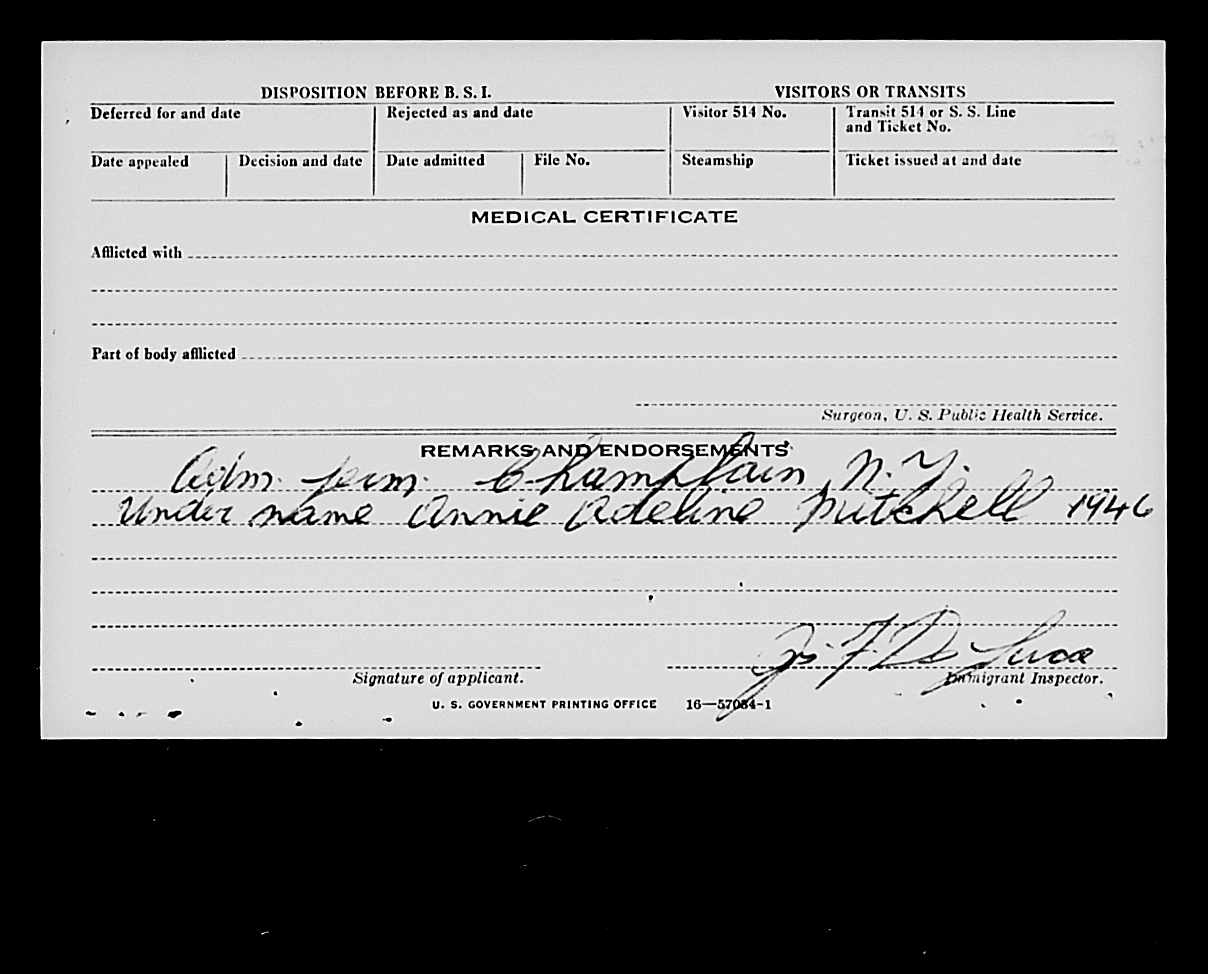 DISPOSITION BEFORE B. S. I. VISITORS OR TRANSITS
Deferred for and date Rejected as and date Visitor 514 No. Transit 514 or S. S. Line
and Ticket No.
Date appealed Decision and date Date admitted File No. Steamship Ticket issued at and date
MEDICAL CERTIFICATE
Afflicted with
Part of body afflicted
Surgeon, U. S. Public Health Service.
REMARKS AND ENDORSEMENTS
Adm. perm. Champlain, N. Y.
Under name Annie Adeline Mitchell 1946
F. De Luca
Signature of applicant. Immigrant Inspector.
U. S. GOVERNMENT PRINTING OFFICE 16—57084-1